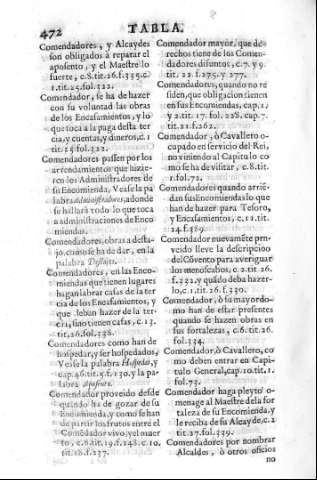 472 TABLA.
Comendadores, y Alcaydes
son obligados à reparar el
aposento, y el Maestre lo
fuerte, c.8.tit.26.f.335.c.
1.tit.25.fol.322.
Comendador, se ha de hazer
con su voluntad las obras
de los Encasamientos, y lo
que toca a la paga desta ter
cia, y cuenta, y dineros, c.1
tit.25.fol.322.
Comendadores passen por los
arrendamientos que hizie-
ren los Administradores de
su Encomienda, Vease la pa
labra Administradores, adonde
se hallará todo lo que toca
a administraciones de Enco
miendas.
Comendadores, obras a desta-
jo, como se ha de dar, en la
palabra Destajos.
Comendadores, en las Enco-
miendas que tienen lugares
hagan labrar casas de la ter
cia de los Encasamientos, y
que deban hazer de la ter-
cia, sino tienen casas, c.13.
tit.26.fol.338.
Comendadores como han de
hospedar, y ser hospedados,
Vease la palabra Hospedar, y
cap.46.tit.5.f.130. y la pa-
labra Aposento.
Comendador proveido desde
quando ha de gozar de su
Encomienda, y como se han
de partir los frutos entre el
Comendador vivo, y el muer
to, c.6.tit.19.f.248.c.10.
tit.18.f.237.
Comendador mayor, que de-
rechos tiene de los Comen-
dadores difuntos, c.7. y 9.
tit.22.f.275. y 277.
Comendadores, quando no re
siden, que obligacion tienen
en sus Encomiendas, cap.1.
y 2.tit.17.fol.228.cap.7.
tit.21.f.262.
Comendador, ò Cavallero o-
cupado en servicio del Rei,
no viniendo al Capitulo co
mo se ha de visitar, c.8.tit.
1.fol.72.
Comendadores quando arrie-
dan sus Encomiendas lo que
han de hazer para Tesoro,
y Encasamientos, c.11.tit.
24.f.389.
Comendador nuevamēte pro-
veido lleve la descripcion
del Cōvento para averiguar
los menoscabos, c.2.tit.26.
f.332. y quādo deba hazer-
lo, c.1.tit.26.f.330.
Comendador, ò su mayordo-
mo han de estar presentes
quando se hazen obras en
sus fortalezas, c.6.tit.26.
fol.334.
Comendador, ò Cavallero, co
mo deben entrar en Capi-
tulo General, cap.10.tit.1.
fol.73.
Comendador haga pleyto o-
menage al Maestre de la for
taleza de su Encomienda, y
le reciba de su Alcayde, c.2
tit.27.fol.339.
Comendadores por nombrar
Alcaldes, ò otros oficios
no